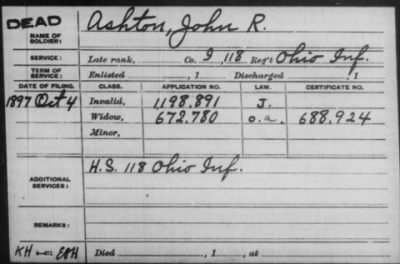 DEAD
NAME OF SOLDIER: Ashton, John R.
SERVICE: Late rank, Co. I, 118 Reg't Ohio Inf.
TERM OF SERVICE: Enlisted , 1 Discharged , 1
DATE OF FILING. CLASS. APPLICATION NO. LAW. CERTIFICATE NO.
1897 Oct 4 Invalid, 1,198,891 J.
Widow, 672,780 o.a. 688,924
Minor,
ADDITIONAL SERVICES: H.S. 118 Ohio Inf.
REMARKS:
KH EBH Died , 1 , at